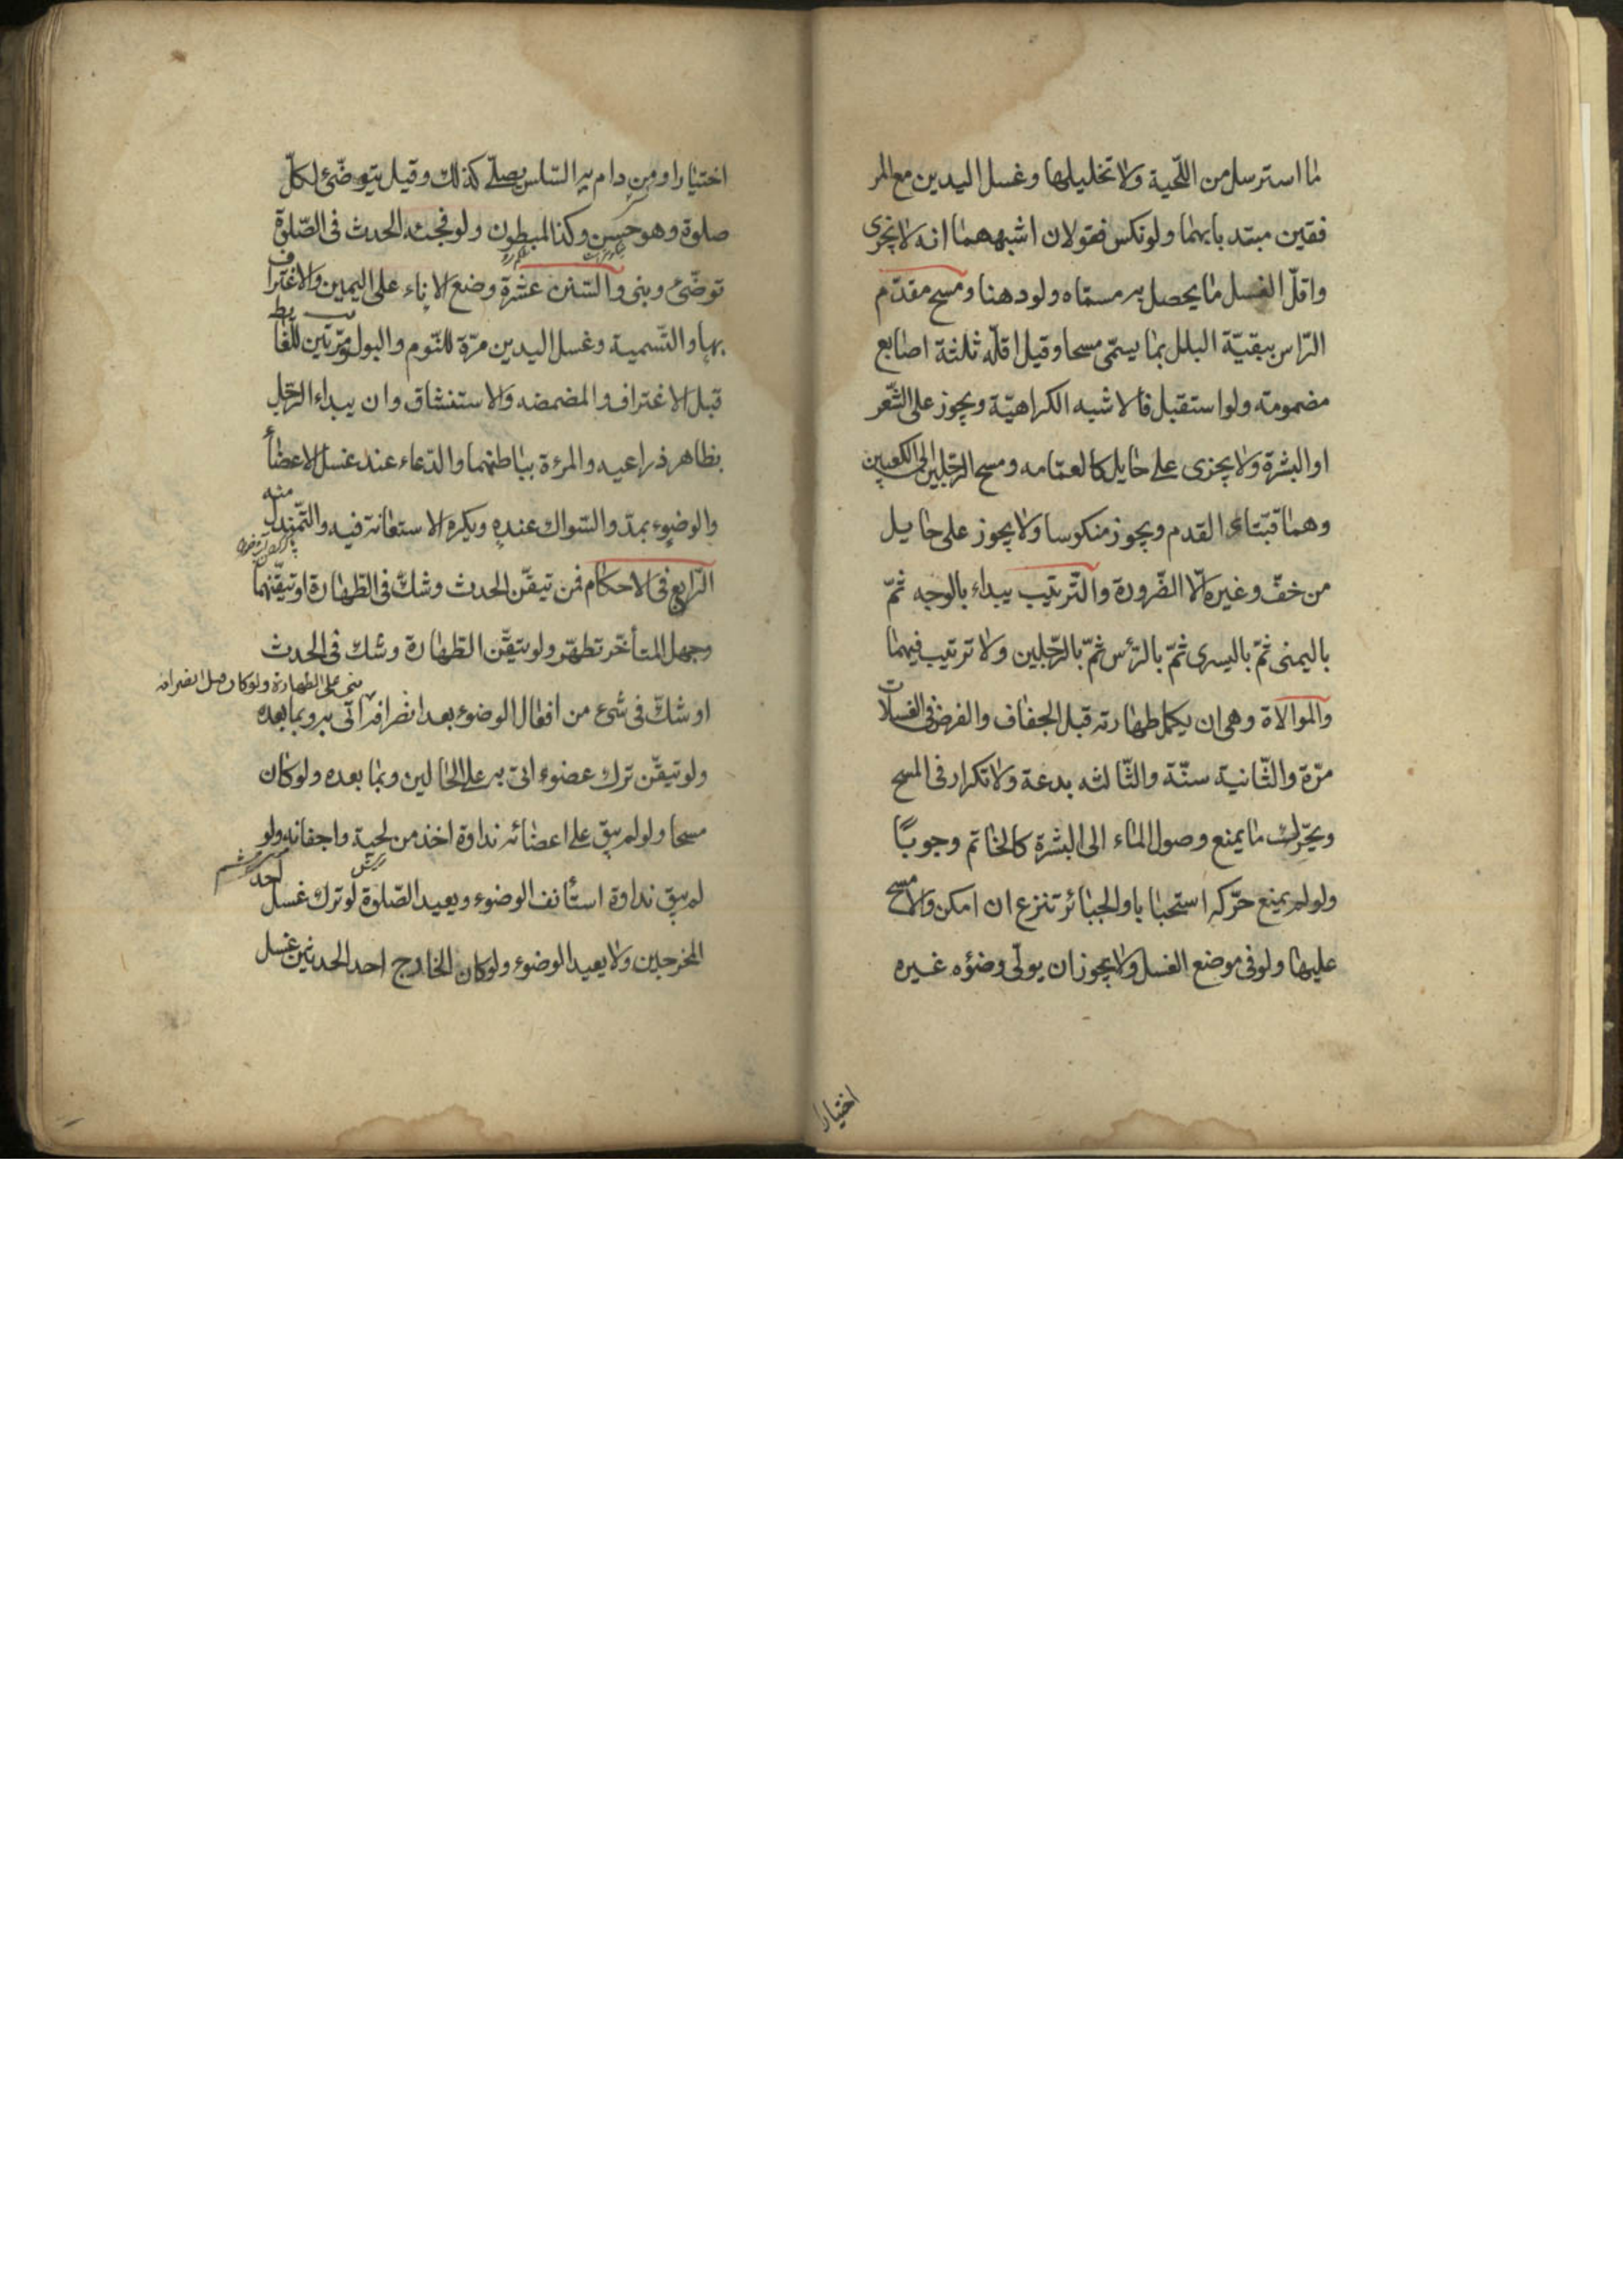 لما استرسل من اللّحية ولا تخليلها وغسل اليدين مع المر
فقين مبتد بابهما ولو نكس فقولان اشبههما انه لا يجزى
واقلّ الغسل ما يحصل به مسمّاه ولو دهنا ومسح مقدّم
الرّاس ببقيّة البلل بما يسمّى مسحا وقيل اقلّه ثلثة اصابع
مضمومته ولو استقبل فالاشبه الكراهيّة ويجوز على الشّعر
او البشرة ولا يجزى على حايل كالعمّامه ومسح الرّجلين الى الكعبين
وهما قبّتاء القدم ويجوز منكوسا ولا يجوز على حايل
من خفّ وغيره الّا الضّرورة والتّرتيب يبداء بالوجه ثمّ
باليمنى ثمّ باليسرى ثمّ بالرّأس ثمّ بالرّجلين ولا ترتيب فيهما
والموالاة وهى ان يكمل طهارته قبل الجفاف والفرض فى الغسلات
مرّة والثّانية سنّة والثّالثه بدعة ولا تكرار فى المسح
ويحرّك ما يمنع وصول الماء الى البشرة كالخاتم وجوبًا
ولو لم يمنع حرّكه استحبابا والجبائر تنزع ان امكن والّا مسح
عليها ولو فى موضع الغسل ولا يجوز ان يولّى وضؤه غيره
اختيارا
اختيارا ومن دام به السّلس يصلّى كذلك وقيل يتوضّئ لكلّ
صلوة وهو حسن وكذا المبطون ولو فجئه الحدث فى الصّلوة
توضّئ وبنى والسّنن عشرة وضع الاناء على اليمين والاغتراف
بها والتّسمية وغسل اليدين مرّة للنّوم والبول ومرّتين للغايط
قبل الاغتراف والمضمضه والاستنشاق وان يبداء الرّجل
بظاهر ذراعيه والمرءة بباطنهما والدّعاء عند غسل الاعضأ
والوضوء بمدّ والسّواك عنده ويكره الاستعانة فيه والتّمندل منه
الرّابع فى الاحكام فمن تيقّن الحدث وشكّ فى الطّهارة او تيقّنهما
وجهل المتأخّر تطهّر ولو تيقّن الطّهارة وشكّ فى الحدث
او شكّ فى شئ من افعال الوضوء بعد انصرافه اتى به وبما بعده
بنى على الطهارة ولو كان قبل انصرافه
ولو تيقّن ترك عضوء اتى به على الحالين وبما بعده ولو كان
مسحا ولو لم يبق على اعضائه نداوة اخذ من لحيته واجفانه ولو
لم يبق نداوة استأنف الوضوء ويعيد الصّلوة لو ترك غسل احد
المخرجين ولا يعيد الوضوء ولو كان الخارج احد الحدثين غسل